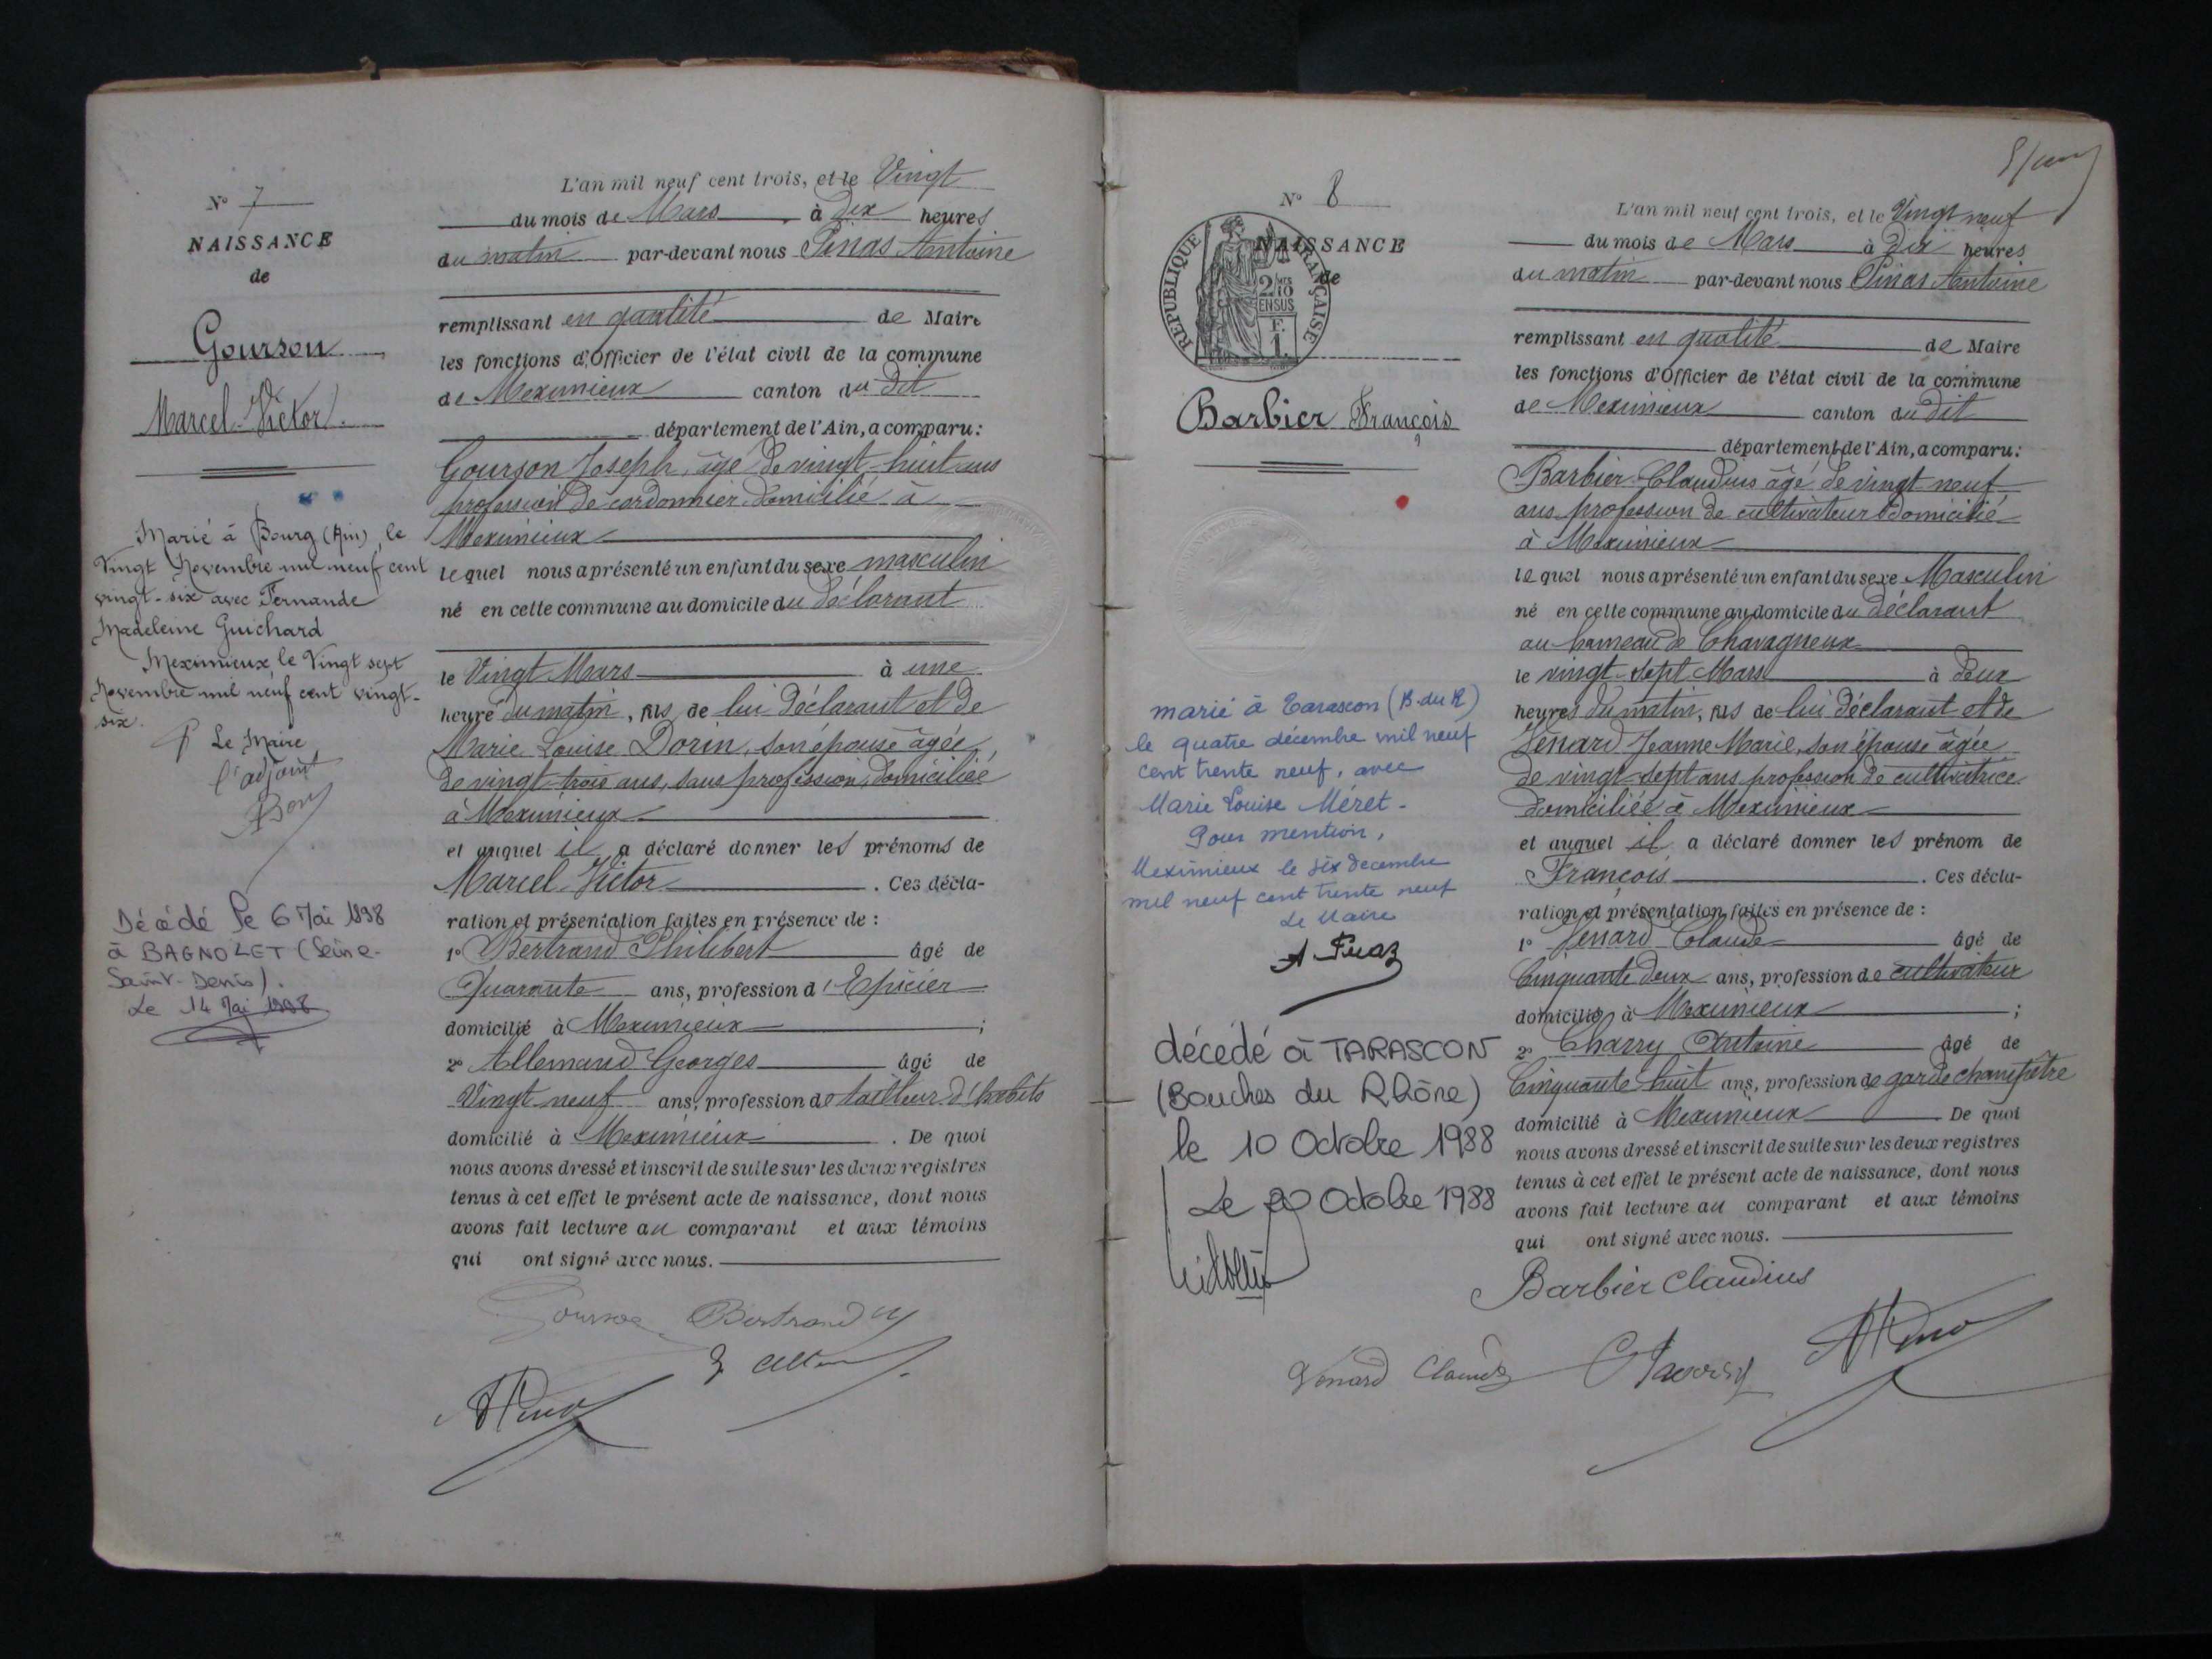 N° 7
NAISSANCE
de
Gourson
Marcel Victor.
Marié à Bourg (Ain), le
Vingt Novembre mil neuf cent
vingt-six avec Fernande
Madeleine Guichard
Meximieux le Vingt sept
Novembre mil neuf cent vingt-
six.
P Le Maire,
l'adjoint
Décédé le 6 Mai 1998
à BAGNOLET (Seine-
Saint-Denis).
Le 14 Mai 1998
L'an mil neuf cent trois, et le Vingt
du mois de Mars à dix heures
du matin par-devant nous Pinas Antoine
remplissant en qualité de Maire
les fonctions d'Officier de l'état civil de la commune
de Meximieux canton du dit
département de l'Ain, a comparu:
Gourson Joseph, âgé de vingt-huit ans
profession de cordonnier domicilié à
Meximieux
lequel nous a présenté un enfant du sexe masculin
né en cette commune au domicile du déclarant
le Vingt Mars à une
heure du matin, fils de lui déclarant et de
Marie Louise Dorin, son épouse âgée,
de vingt-trois ans, sans profession, domiciliée
à Meximieux
et auquel il a déclaré donner les prénoms de
Marcel Victor. Ces décla-
ration et présentation faites en présence de :
1° Bertrand Philibert âgé de
Quarante ans, profession d'Epicier
domicilié à Meximieux ;
2° Allemand Georges âgé de
Vingt-neuf ans, profession de tailleur d'habits
domicilié à Meximieux. De quoi
nous avons dressé et inscrit de suite sur les deux registres
tenus à cet effet le présent acte de naissance, dont nous
avons fait lecture au comparant et aux témoins
qui ont signé avec nous.
Bertrand
N° 8
NAISSANCE
de
REPUBLIQUE FRANÇAISE
2/10
EN SUS
F.
1.
Barbier François
marié à Tarascon (B. du R)
le quatre décembre mil neuf
cent trente neuf, avec
Marie Louise Méret.
Pour mention,
Meximieux le six décembre
mil neuf cent trente neuf
Le Maire
décédé à TARASCON
(Bouches du Rhône)
le 10 Octobre 1988
Le 20 Octobre 1988
L'an mil neuf cent trois, et le Vingt neuf
du mois de Mars à dix heures
du matin par-devant nous Pinas Antoine
remplissant en qualité de Maire
les fonctions d'Officier de l'état civil de la commune
de Meximieux canton du dit
département de l'Ain, a comparu:
Barbier Claudius âgé de vingt neuf
ans profession de cultivateur domicilié
à Meximieux
lequel nous a présenté un enfant du sexe Masculin
né en cette commune au domicile du déclarant
au hameau de Chavagneux
le vingt-sept Mars à deux
heures du matin, fils de lui déclarant et de
Jénard Jeanne Marie, son épouse âgée
de vingt-sept ans profession de cultivatrice
domiciliée à Meximieux
et auquel il a déclaré donner les prénom de
François. Ces décla-
ration et présentation faites en présence de :
1° Jenard Claude âgé de
Cinquante deux ans, profession de cultivateur
domicilié à Meximieux ;
2° Charry Antoine âgé de
Cinquante huit ans, profession de garde champêtre
domicilié à Meximieux De quoi
nous avons dressé et inscrit de suite sur les deux registres
tenus à cet effet le présent acte de naissance, dont nous
avons fait lecture au comparant et aux témoins
qui ont signé avec nous.
Barbier Claudius
Jenard Claude